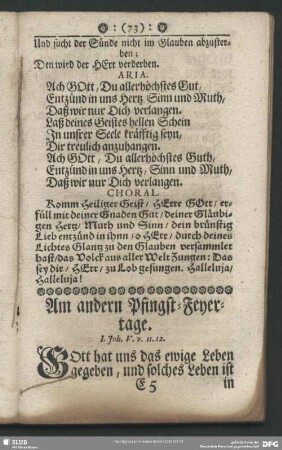 : (73) :
Und sucht der Sünde nicht im Glauben abzuster-
ben;
Den wird der HErr verderben.
ARIA.
Ach GOtt, Du allerhöchstes Gut,
Entzünd in uns Hertz Sinn und Muth,
Daß wir nur Dich verlangen.
Laß deines Geistes hellen Schein
In unsrer Seele kräfftig seyn,
Dir treulich anzuhangen.
Ach GOtt, Du allerhöchstes Guth,
Entzünd in uns Hertz, Sinn und Muth,
Daß wir nur Dich verlangen.
CHORAL.
Komm Heiliger Geist, HErre GOtt, er-
füll mit deiner Gnaden Gut, deiner Gläubi-
gen Hertz, Muth und Sinn, dein brünstig
Lieb entzünd in ihnn, o HErr, durch deines
Lichtes Glantz zu den Glauben versammlet
hast, das Volck aus aller Welt Zungen: Das
sey dir, HErr, zu Lob gesungen. Halleluja,
Halleluja!
Am andern Pfingst-Feyer-
tage.
I. Joh. V. v. 11. 12.
GOtt hat uns das ewige Leben
gegeben, und solches Leben ist
E 5 in
SLUB
DFG